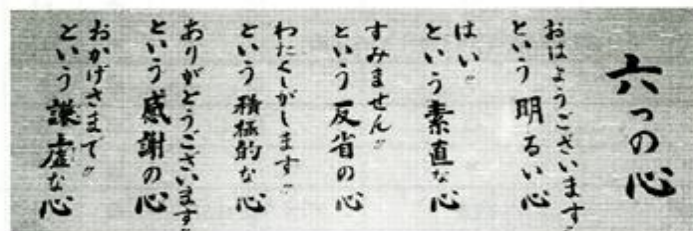 六つの心
おはようございます〃
という明るい心
はい〃
という素直な心
すみません〃
という反省の心
わたくしがします〃
という積極的な心
ありがとうございます〃
という感謝の心
おかげさまで〃
という謙虚な心